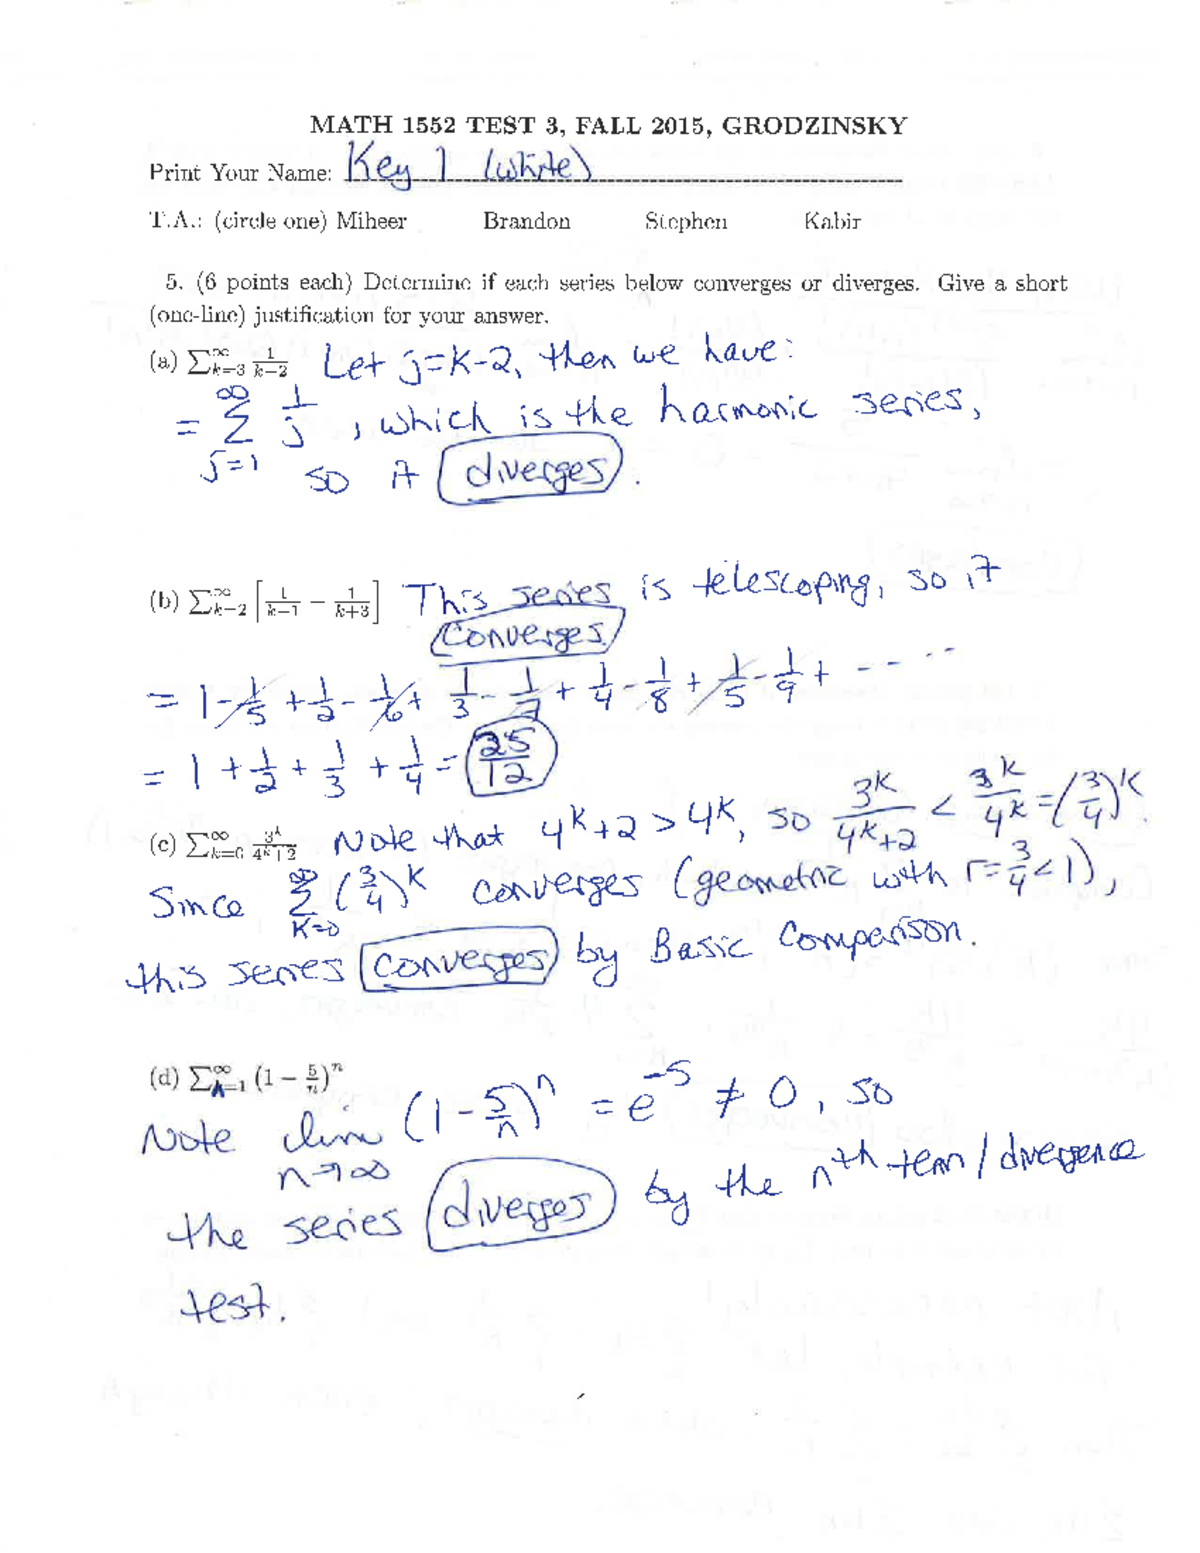 MATH 1552 TEST 3, FALL 2015, GRODZINSKY
Print Your Name: Key 1 (White)
T.A.: (circle one) Miheer Brandon Stephen Kabir
5. (6 points each) Determine if each series below converges or diverges. Give a short
(one-line) justification for your answer.
(a) ∑_{k=3}^∞ 1/(k−2) Let j=k-2, then we have:
= ∑_{j=1}^∞ 1/j, which is the harmonic series,
so it diverges.
(b) ∑_{k=2}^∞ [1/(k−1) − 1/(k+3)] This series is telescoping, so it
converges.
= 1 - 1/5 + 1/2 - 1/6 + 1/3 - 1/7 + 1/4 - 1/8 + 1/5 - 1/9 + - - - -
= 1 + 1/2 + 1/3 + 1/4 = 25/12
(c) ∑_{k=0}^∞ 3^k/(4^k+2) Note that 4^k+2 > 4^k, so 3^k/(4^k+2) < 3^k/4^k = (3/4)^k.
Since ∑_{k=0}^∞ (3/4)^k converges (geometric with r=3/4<1),
this series converges by Basic Comparison.
(d) ∑_{n=1}^∞ (1 − 5/n)^n
Note lim_{n→∞} (1 - 5/n)^n = e^{-5} ≠ 0, so
the series diverges by the nth term/divergence
test.